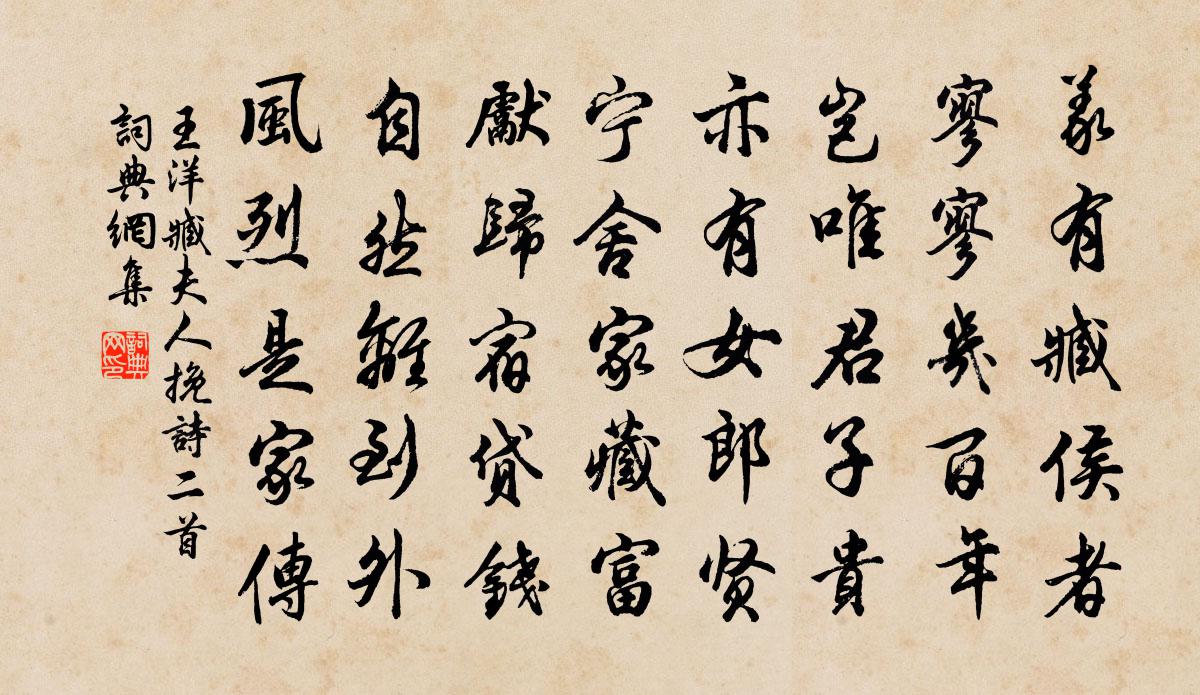 義有臧侯者
寥寥幾百年
岂唯君子貴
亦有女郎贤
宁舍家藏富
獻歸宿貸錢
自然難到外
風烈是家傳
王洋臧夫人挽詩二首
詞典網集
詞典网印